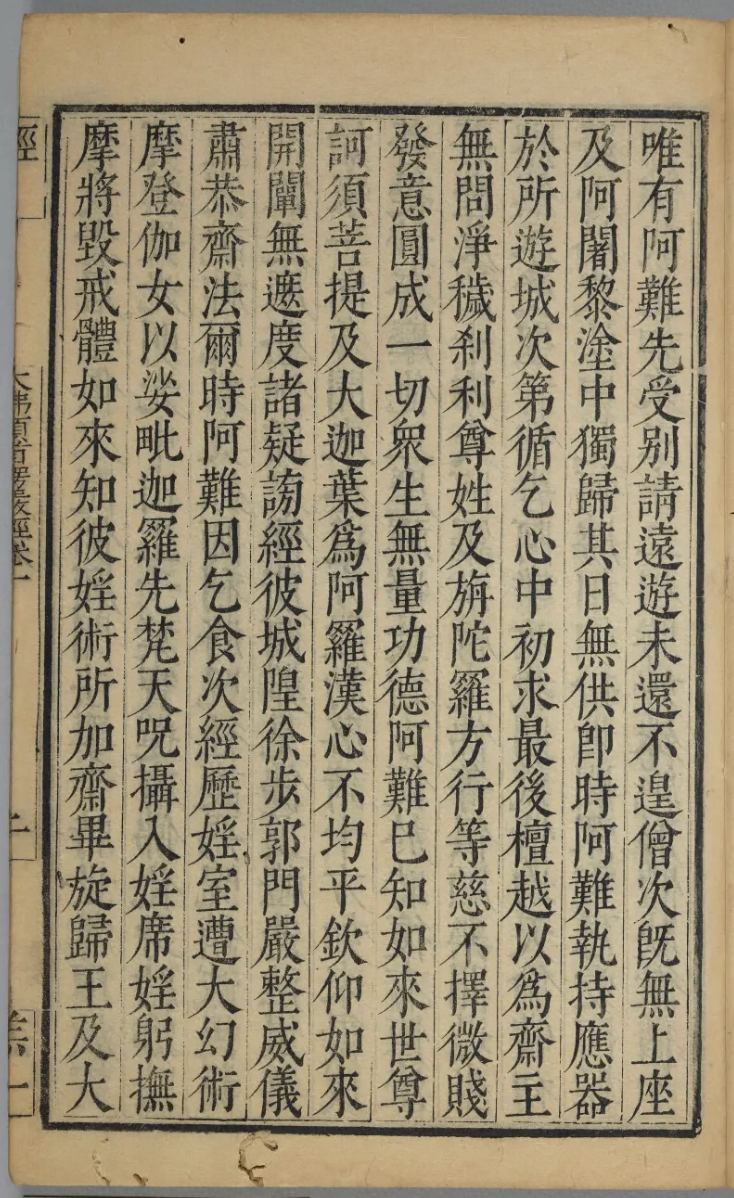 唯有阿難先受別請遠遊未還不遑僧次既無上座
及阿闍黎塗中獨歸其日無供卽時阿難執持應器
於所遊城次第循乞心中初求最後檀越以爲齋主
無問淨穢刹利尊姓及旃陀羅方行等慈不擇微賤
發意圓成一切衆生無量功德阿難已知如來世尊
訶須菩提及大迦葉爲阿羅漢心不均平欽仰如來
開闡無遮度諸疑謗經彼城隍徐步郭門嚴整威儀
肅恭齋法爾時阿難因乞食次經歷婬室遭大幻術
摩登伽女以娑毗迦羅先梵天呪攝入婬席婬躬撫
摩將毀戒體如來知彼婬術所加齋畢旋歸王及大
經
大佛頂首楞嚴經卷一